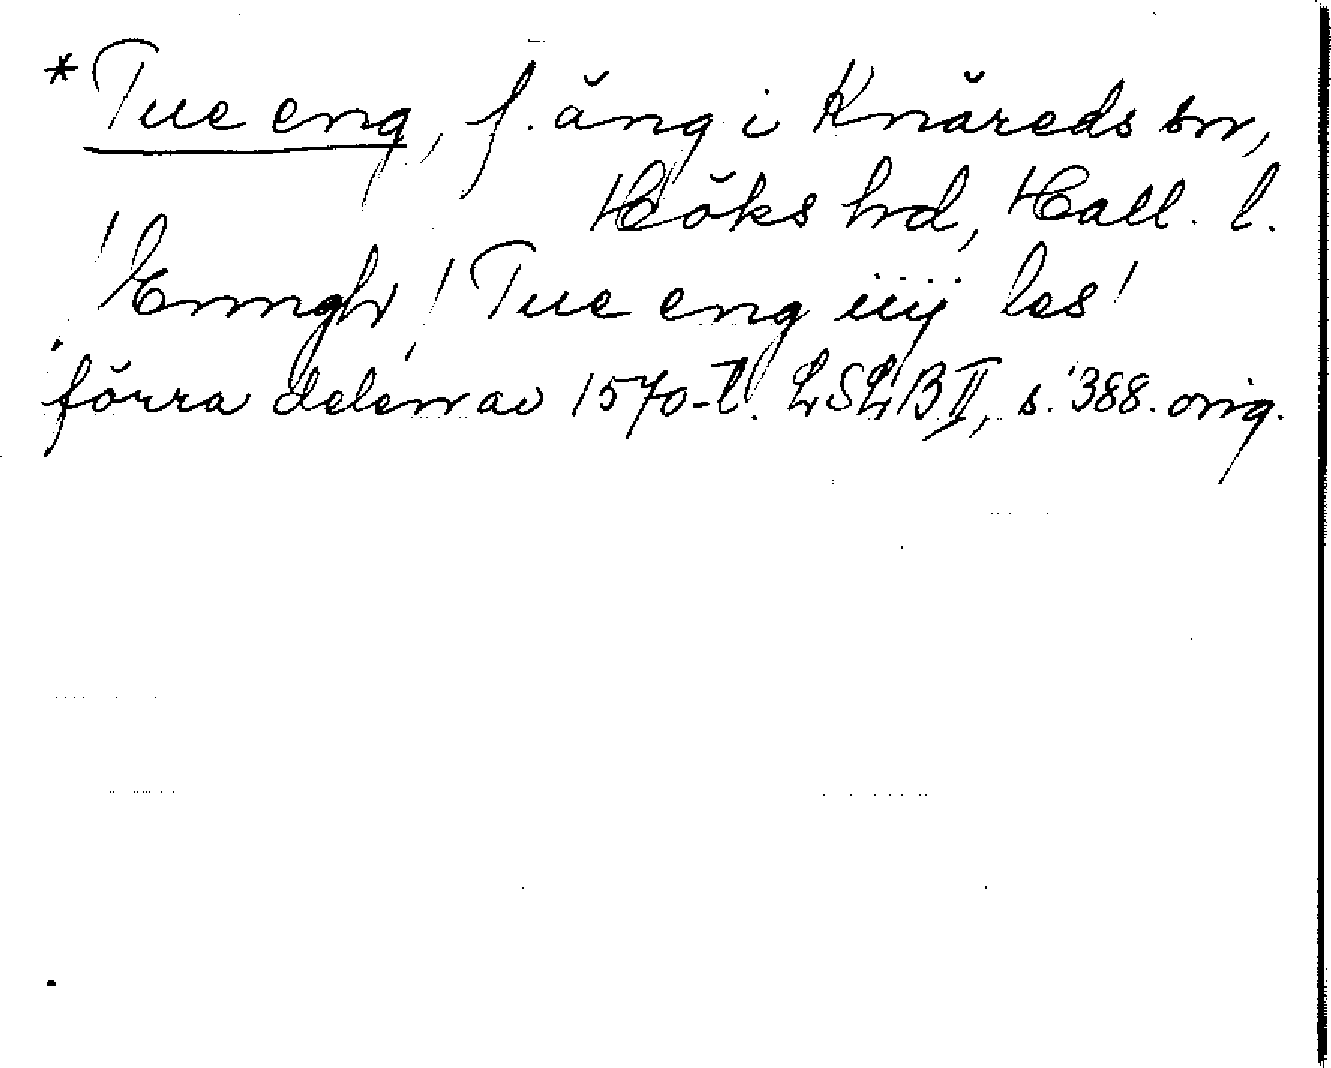 *Tue eng, f. äng i Knäreds sn,
Höks hd, Hall. l.
'Enngh / Tue eng iiij les'
förra delen av 1570-t. LSLB II, s. 388. orig.